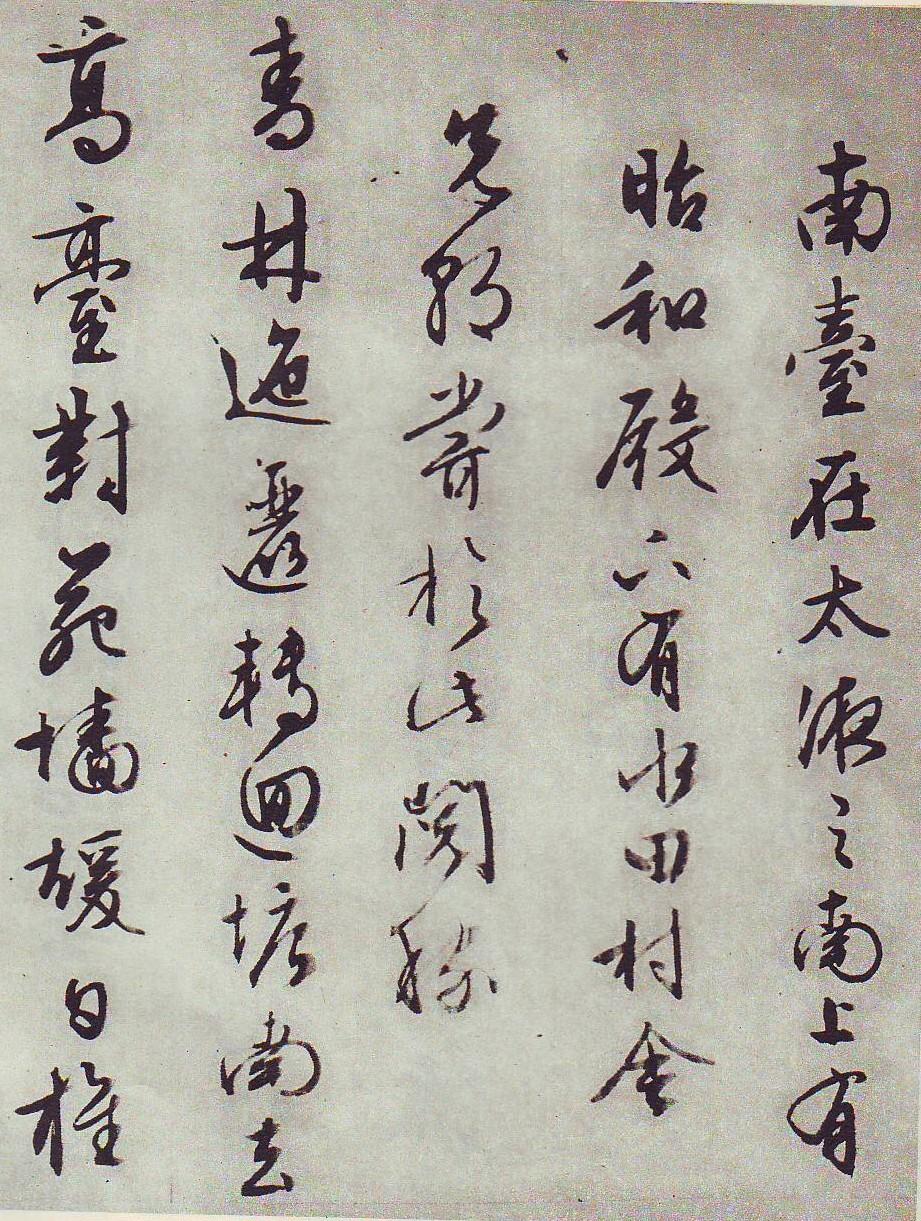 南臺在太液之南上有
昭和殿下有水田村舍
先朝嘗於此閱稼
青林迤邐轉迴塘南去
高臺對苑墻暖日旌